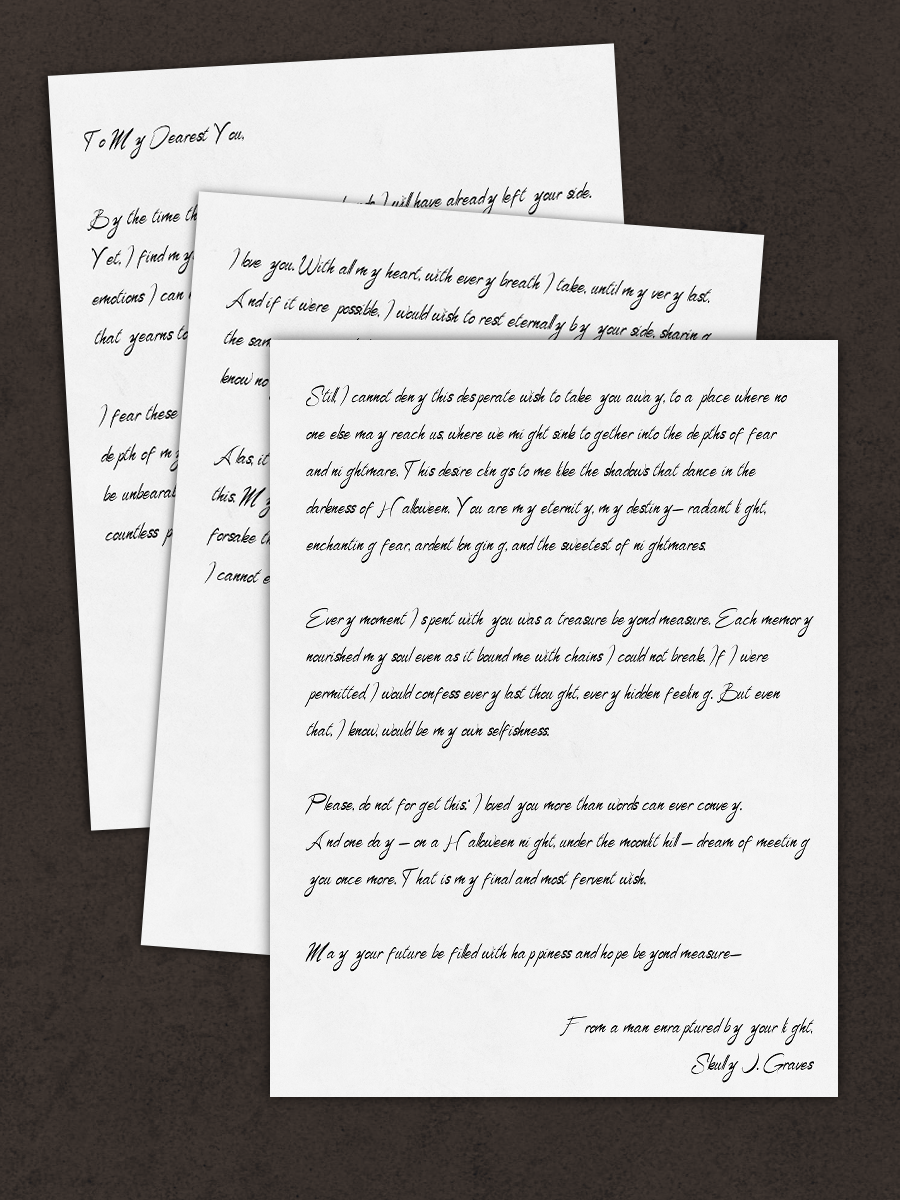 To My Dearest You,
By the time th
I will have already left your side.
Yet, I find my
emotions I can
that yearns to
I fear these
depth of my
be unbearab
countless p
I love you. With all my heart, with every breath I take, until my very last.
And if it were possible, I would wish to rest eternally by your side, sharing
the sam
know no
Alas, it
this. My
forsake th
I cannot e
Still, I cannot deny this desperate wish to take you away, to a place where no
one else may reach us, where we might sink together into the depths of fear
and nightmare. This desire clings to me like the shadows that dance in the
darkness of Halloween. You are my eternity, my destiny— radiant light,
enchanting fear, ardent longing, and the sweetest of nightmares.
Every moment I spent with you was a treasure beyond measure. Each memory
nourished my soul even as it bound me with chains I could not break. If I were
permitted, I would confess every last thought, every hidden feeling. But even
that, I know, would be my own selfishness.
Please, do not forget this: I loved you more than words can ever convey.
And one day — on a Halloween night, under the moonlit hill — dream of meeting
you once more. That is my final and most fervent wish.
May your future be filled with happiness and hope beyond measure—
From a man enraptured by your light,
Skully J. Graves